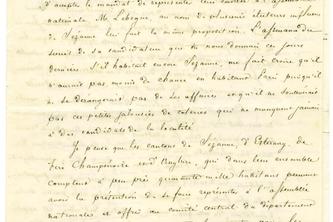 accepté le mandat de représenter
nationale. M. Labèque, au nom de plusieurs électeurs influens
de Sézanne lui fait la même proposition.
de sa candidature que tu nous donnais ces jours
derniers. S'il habitait encore Sézanne, me fait croire qu'il
n'aurait pas moins de chance en habitant Paris puisqu'il
ne se dérangerait pas de ses affaires et qu'il ne soulèverait
pas ces petites jalousies de coteries qui ne manquent jamais
à des candidats de la localité.
Je pense que les cantons de Sézanne, d'Esternay, de
fère Champenoise et d'Anglure, qui dans leur ensemble
comptent à peu près quarante mille habitants peuvent
avoir la prétention de se faire représenter à l'assemblée
nationale et offrir au comité central du département